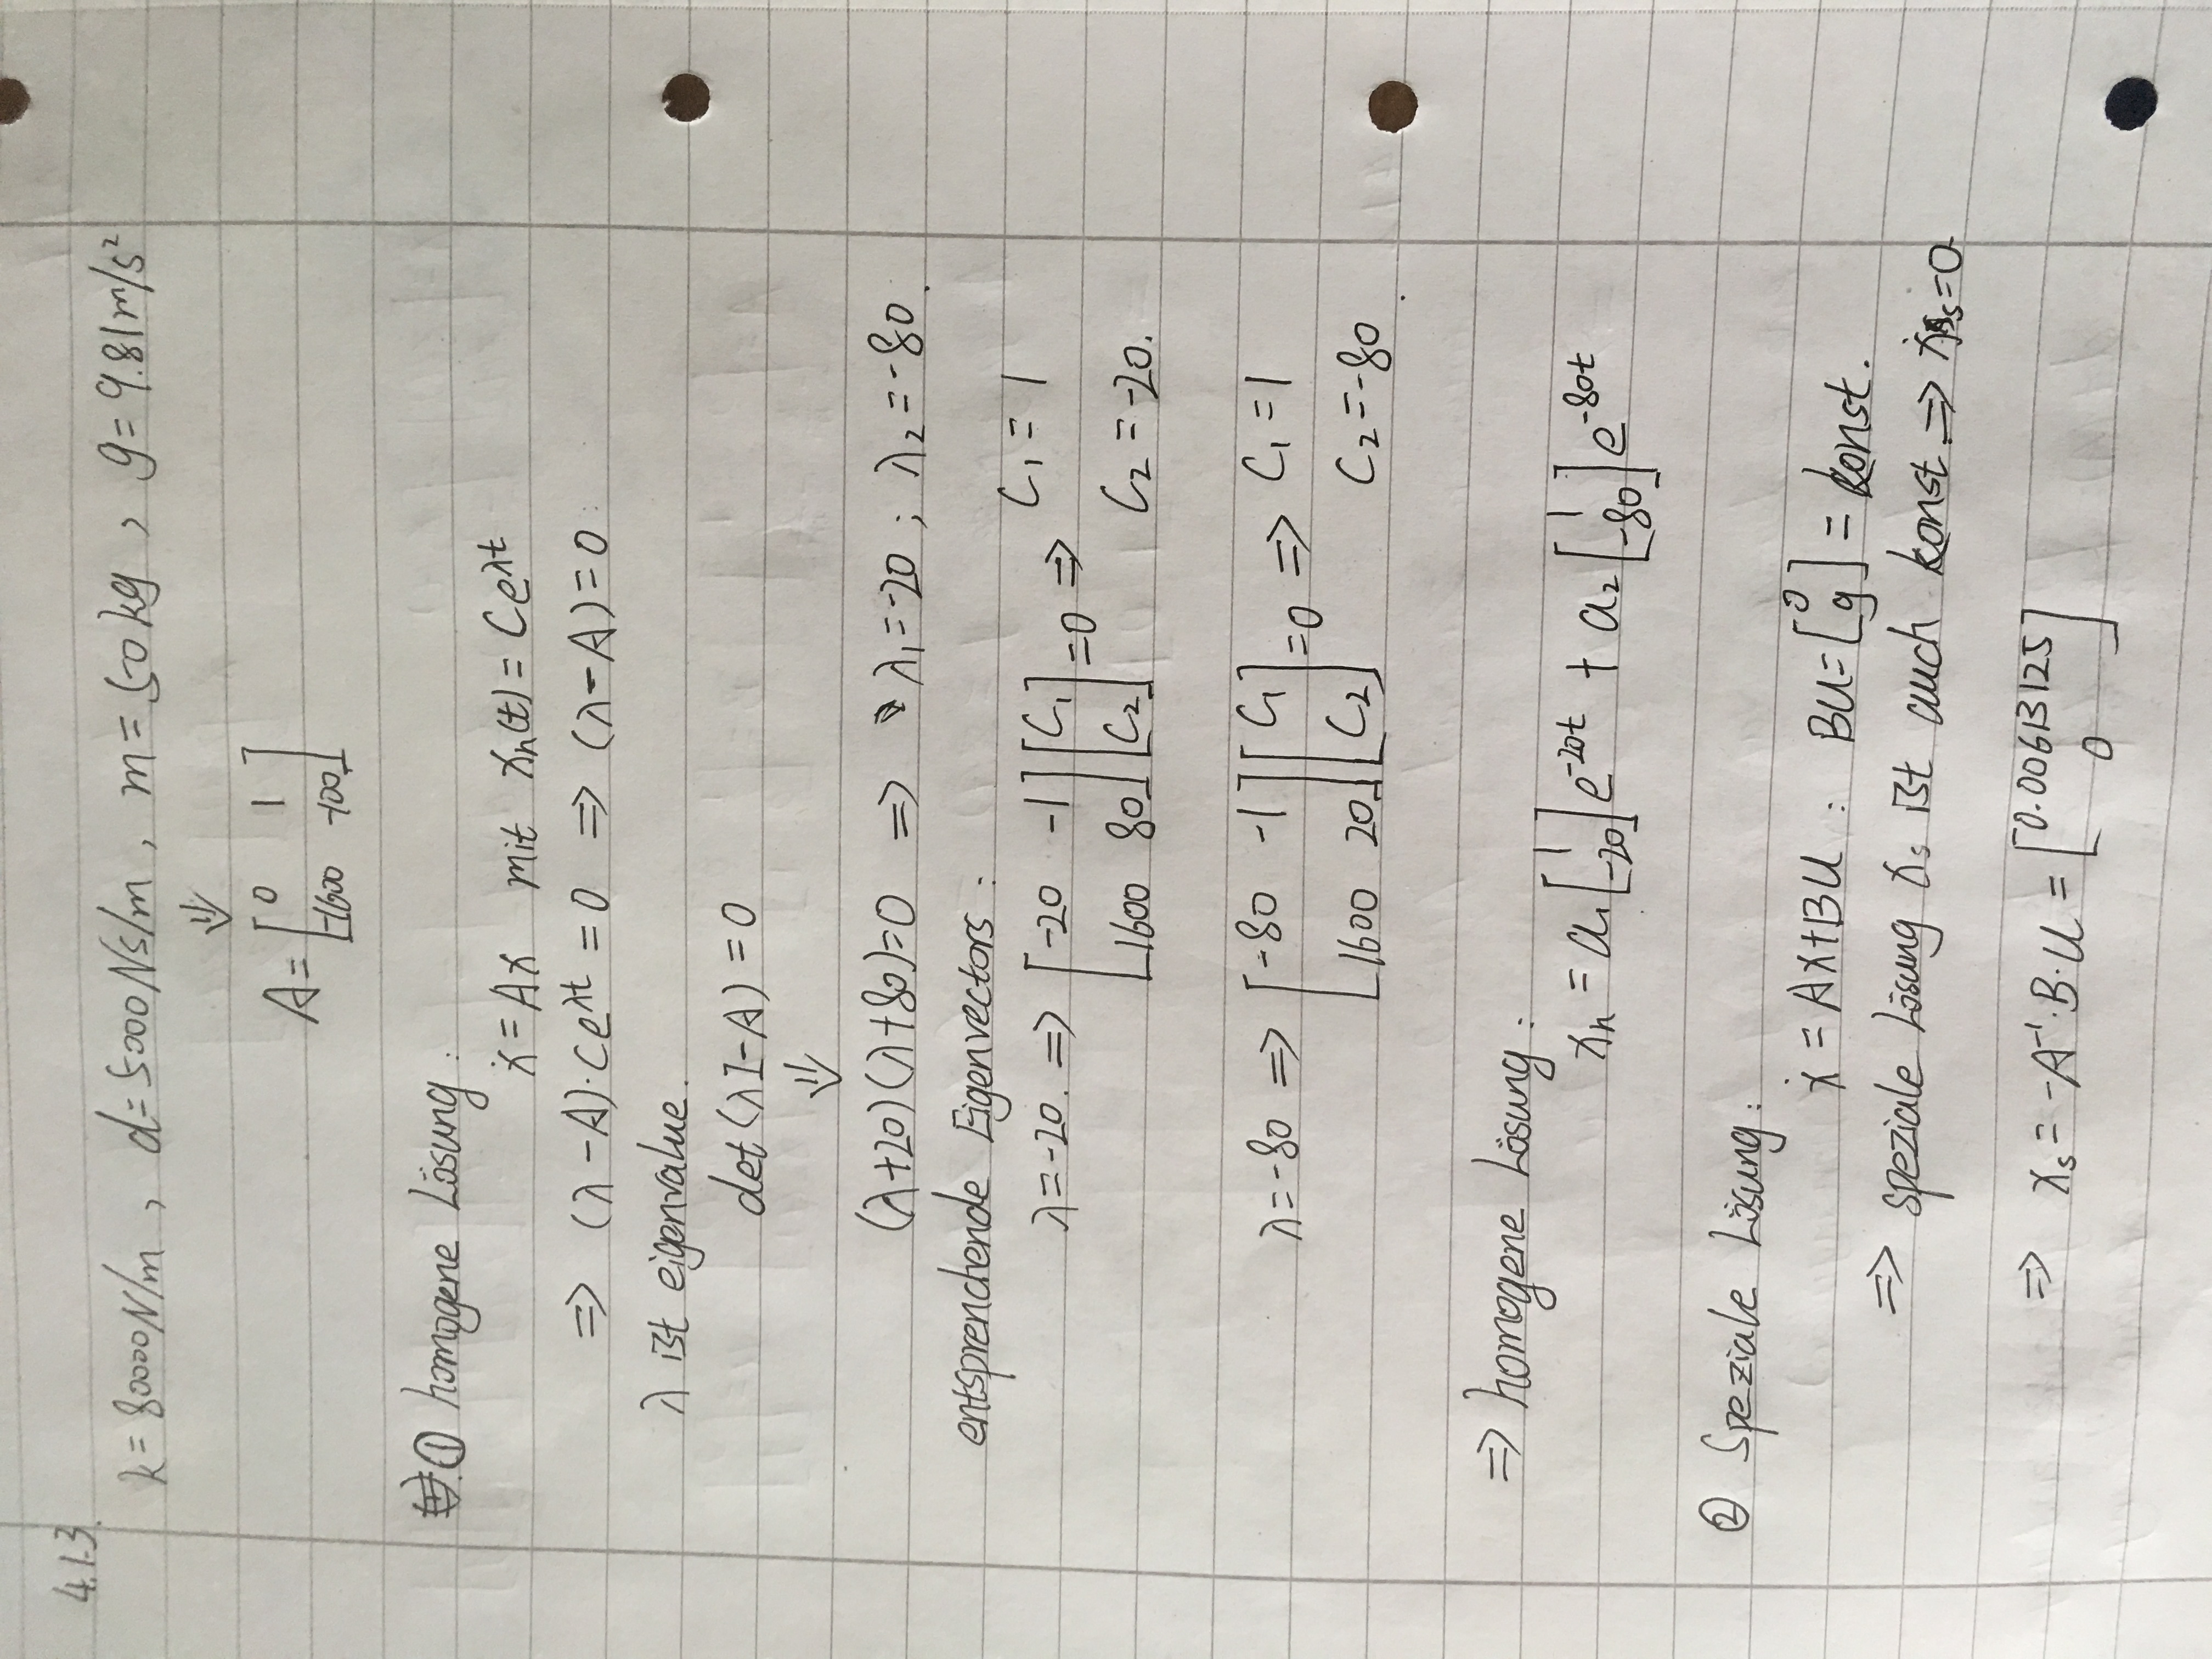 4.1.3.
k = 80000N/m , d=5000Ns/m , m = 50kg , g = 9.81m/s²
⇓
A = [0 1
-1600 -100]
① homogene Lösung :
ẋ = Ax mit xₕ(t) = Ce^λt
⇒ (λ-A)·Ce^λt = 0 ⇒ (λ-A) = 0
λ ist eigenvalue.
det(λI-A) = 0
⇓
(λ+20)(λ+80)=0 ⇒ λ₁=-20 ; λ₂=-80.
entsprenchende Eigenvectors :
λ=-20. ⇒ [-20 -1] [C₁] =0 ⇒ C₁ = 1
[1600 80] [C₂] C₂ = -20.
λ=-80 ⇒ [-80 -1] [C₁] =0 ⇒ C₁ = 1
[1600 20] [C₂] C₂ = -80
⇒ homogene Lösung :
xₕ = a₁ [1 -20] e^-20t + a₂ [1 -80] e^-80t
② Speziale Lösung :
ẋ = Ax+BU : BU = [0 g] = konst.
⇒ speziale Lösung xₛ ist auch konst. ⇒ ẋₛ=0
⇒ xₛ = -A⁻¹·B·U = [0.00613125
0]